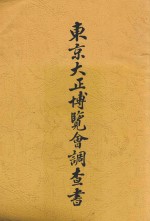 東京大正博覽會調查書